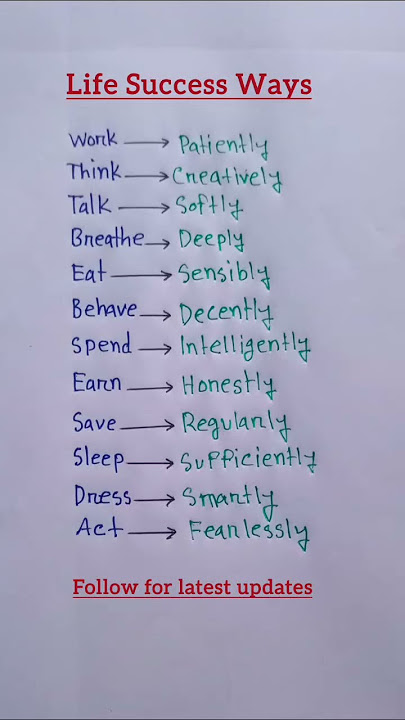 Life Success Ways
Work → Patiently
Think → Creatively
Talk → Softly
Breathe → Deeply
Eat → Sensibly
Behave → Decently
Spend → Intelligently
Earn → Honestly
Save → Regularly
Sleep → Sufficiently
Dress → Smartly
Act → Fearlessly
Follow for latest updates